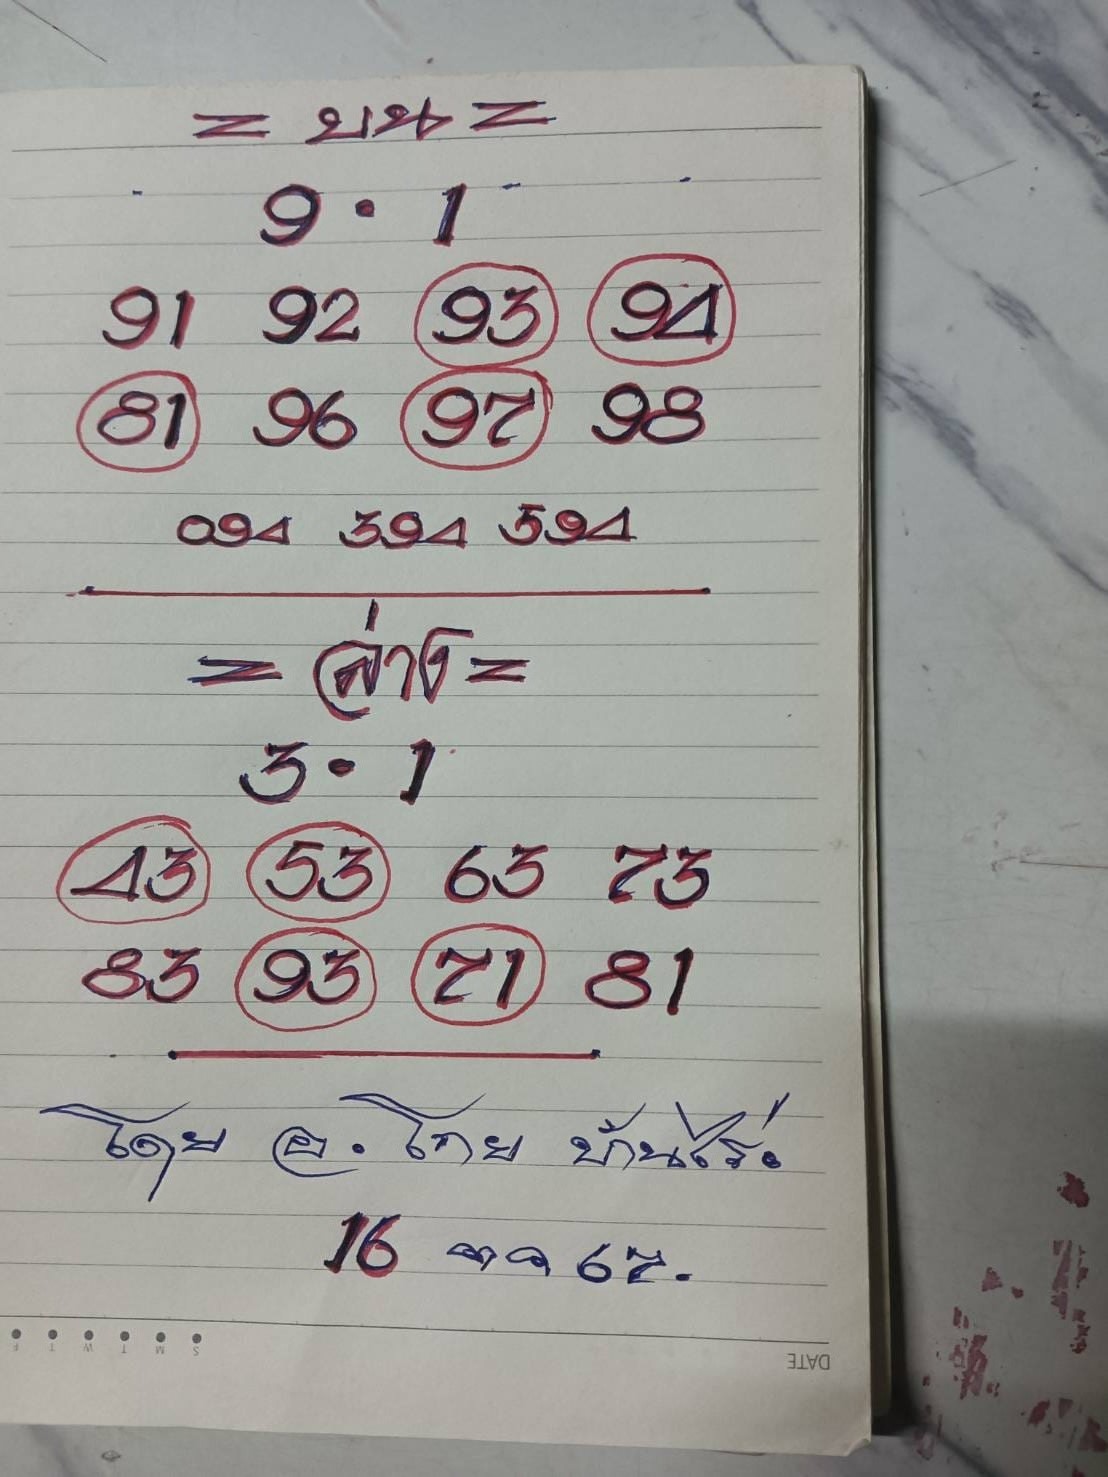 = บน =
9 · 1
91 92 93 94
81 96 97 98
094 394 594
= ล่าง =
3 · 1
43 53 63 73
83 93 71 81
โดย อ. ไทย บ้านไร่.
16 ตค 67.
S M T W T F
DATE